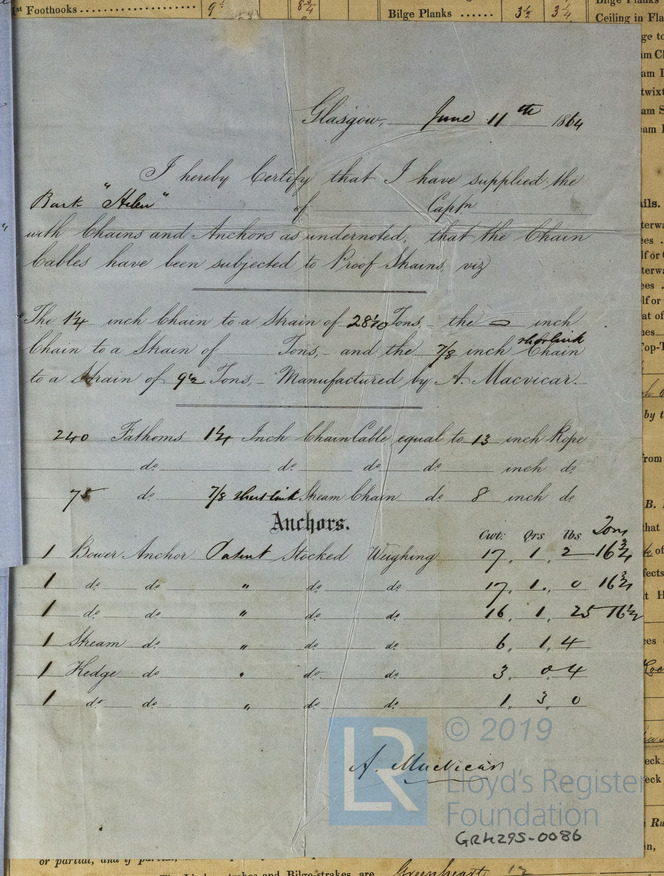 Foothooks
Bilge Planks
3½
3¼
Ceiling in Fla
Glasgow, June 11th 1864
I hereby Certify that I have supplied the
Bark "Helen" of Captn
with Chains and Anchors as undernoted, that the Chain
Cables have been subjected to Proof Strains, viz
The 1¼ inch Chain to a Strain of Tons, the inch
Chain to a Strain of Tons, and the 7/8 inch short link Chain
to a Strain of 9½ Tons, Manufactured by A. Macvicar.
240 Fathoms 1¼ Inch Chain Cable equal to 13 inch Rope
do do do do inch do
75 do 7/8 short link Stream Chain do 8 inch do
Anchors.
Cwt. Qrs lbs Tons
1 Bower Anchor Patent Stocked Weighing 17. 1. 2 16¾
1 do do " do do 17. 1. 0 16¾
1 do do " do do 16. 1. 25 16½
1 Stream do " do do 6. 1. 4
1 Kedge do " do do 3. 0. 4
1 do do " do do 1. 3. 0
A. Macvicar
LR © 2019
Lloyd's Register
Foundation
GRK295-0086
or partial, and if partial,
Bilge-strakes are Greenheart 12